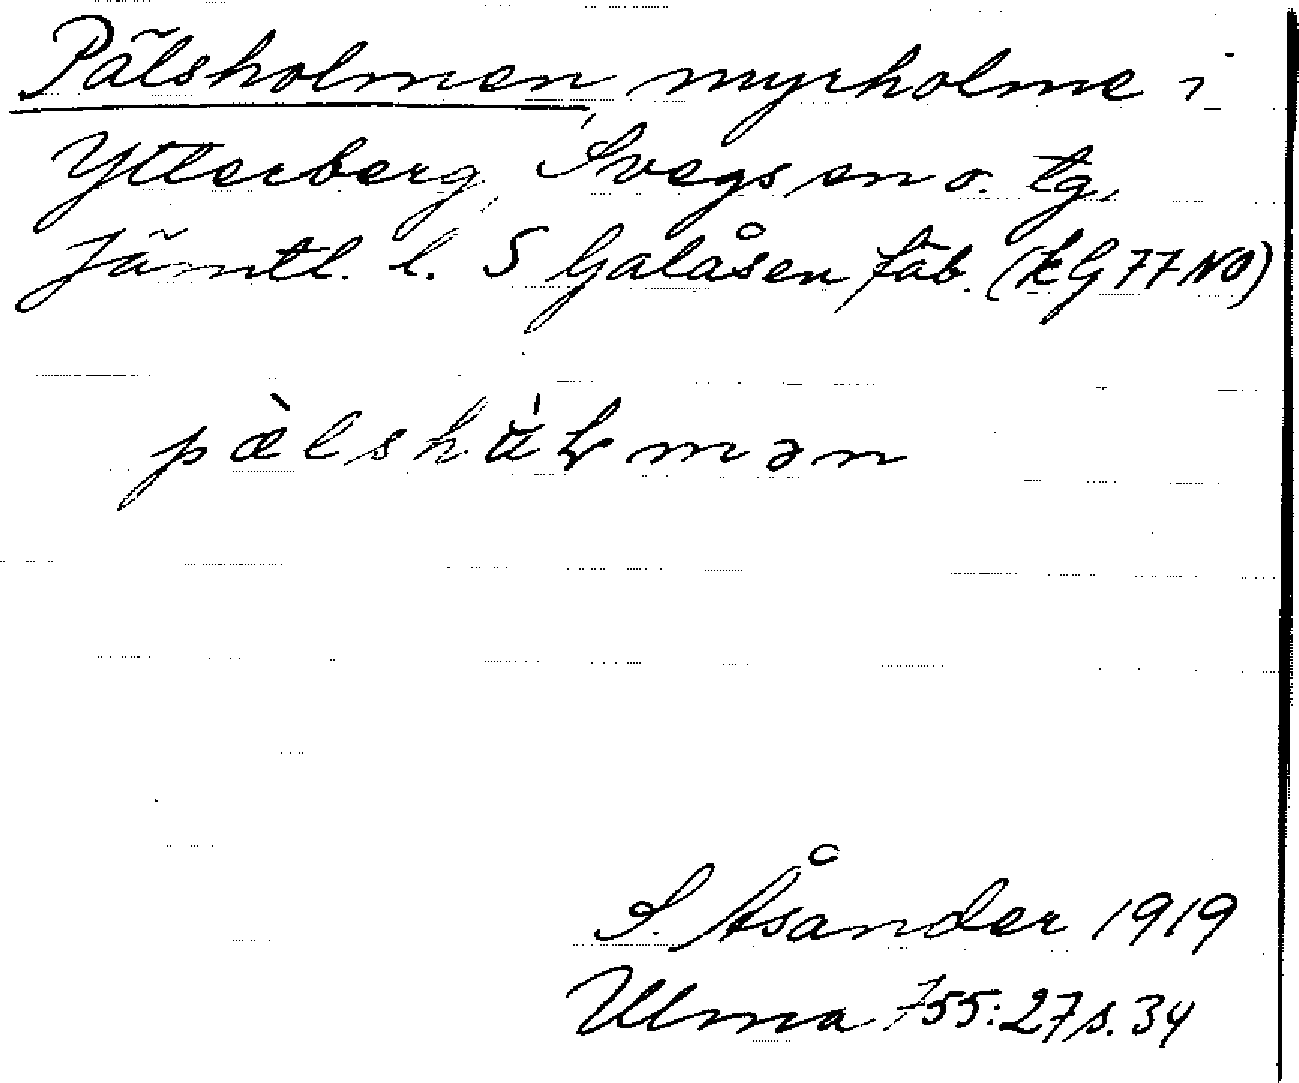 Pälsholmen, myrholme i
Ytterberg, Svegs sn o. tg,
Jämtl. l. S Galåsen fäb. (kG 77 NO)
pæ̀lshùḷmən
S. Åsander 1919
Ulma 755:27 s. 34